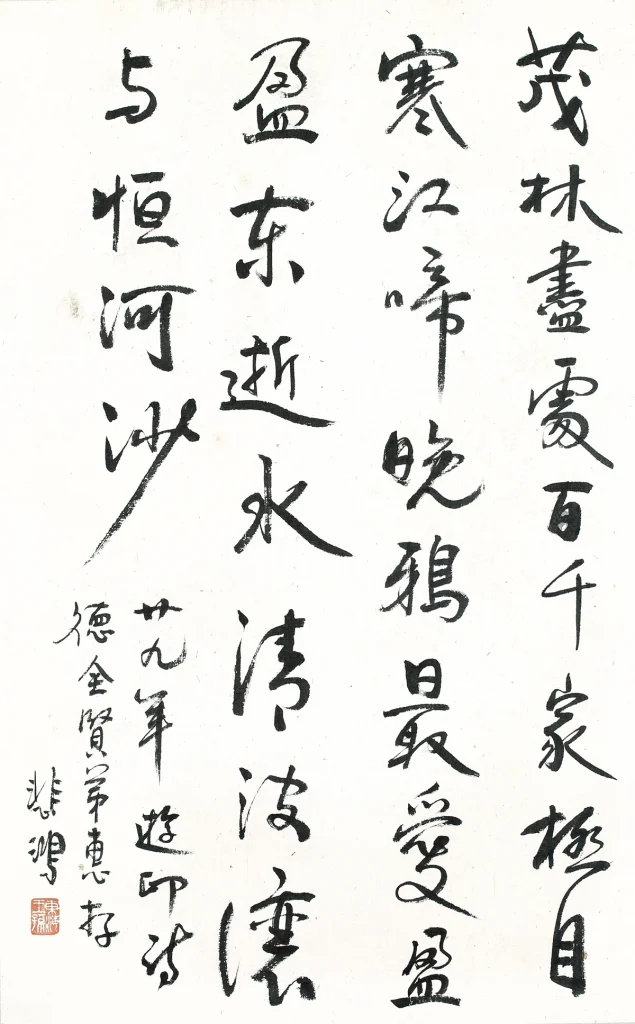 茂林盡處百千家極目
寒江啼晚鴉最愛盈
盈东逝水清波瀼
与恒河沙
廿九年遊印詩
德全賢弟惠存
悲鴻
東海王孫